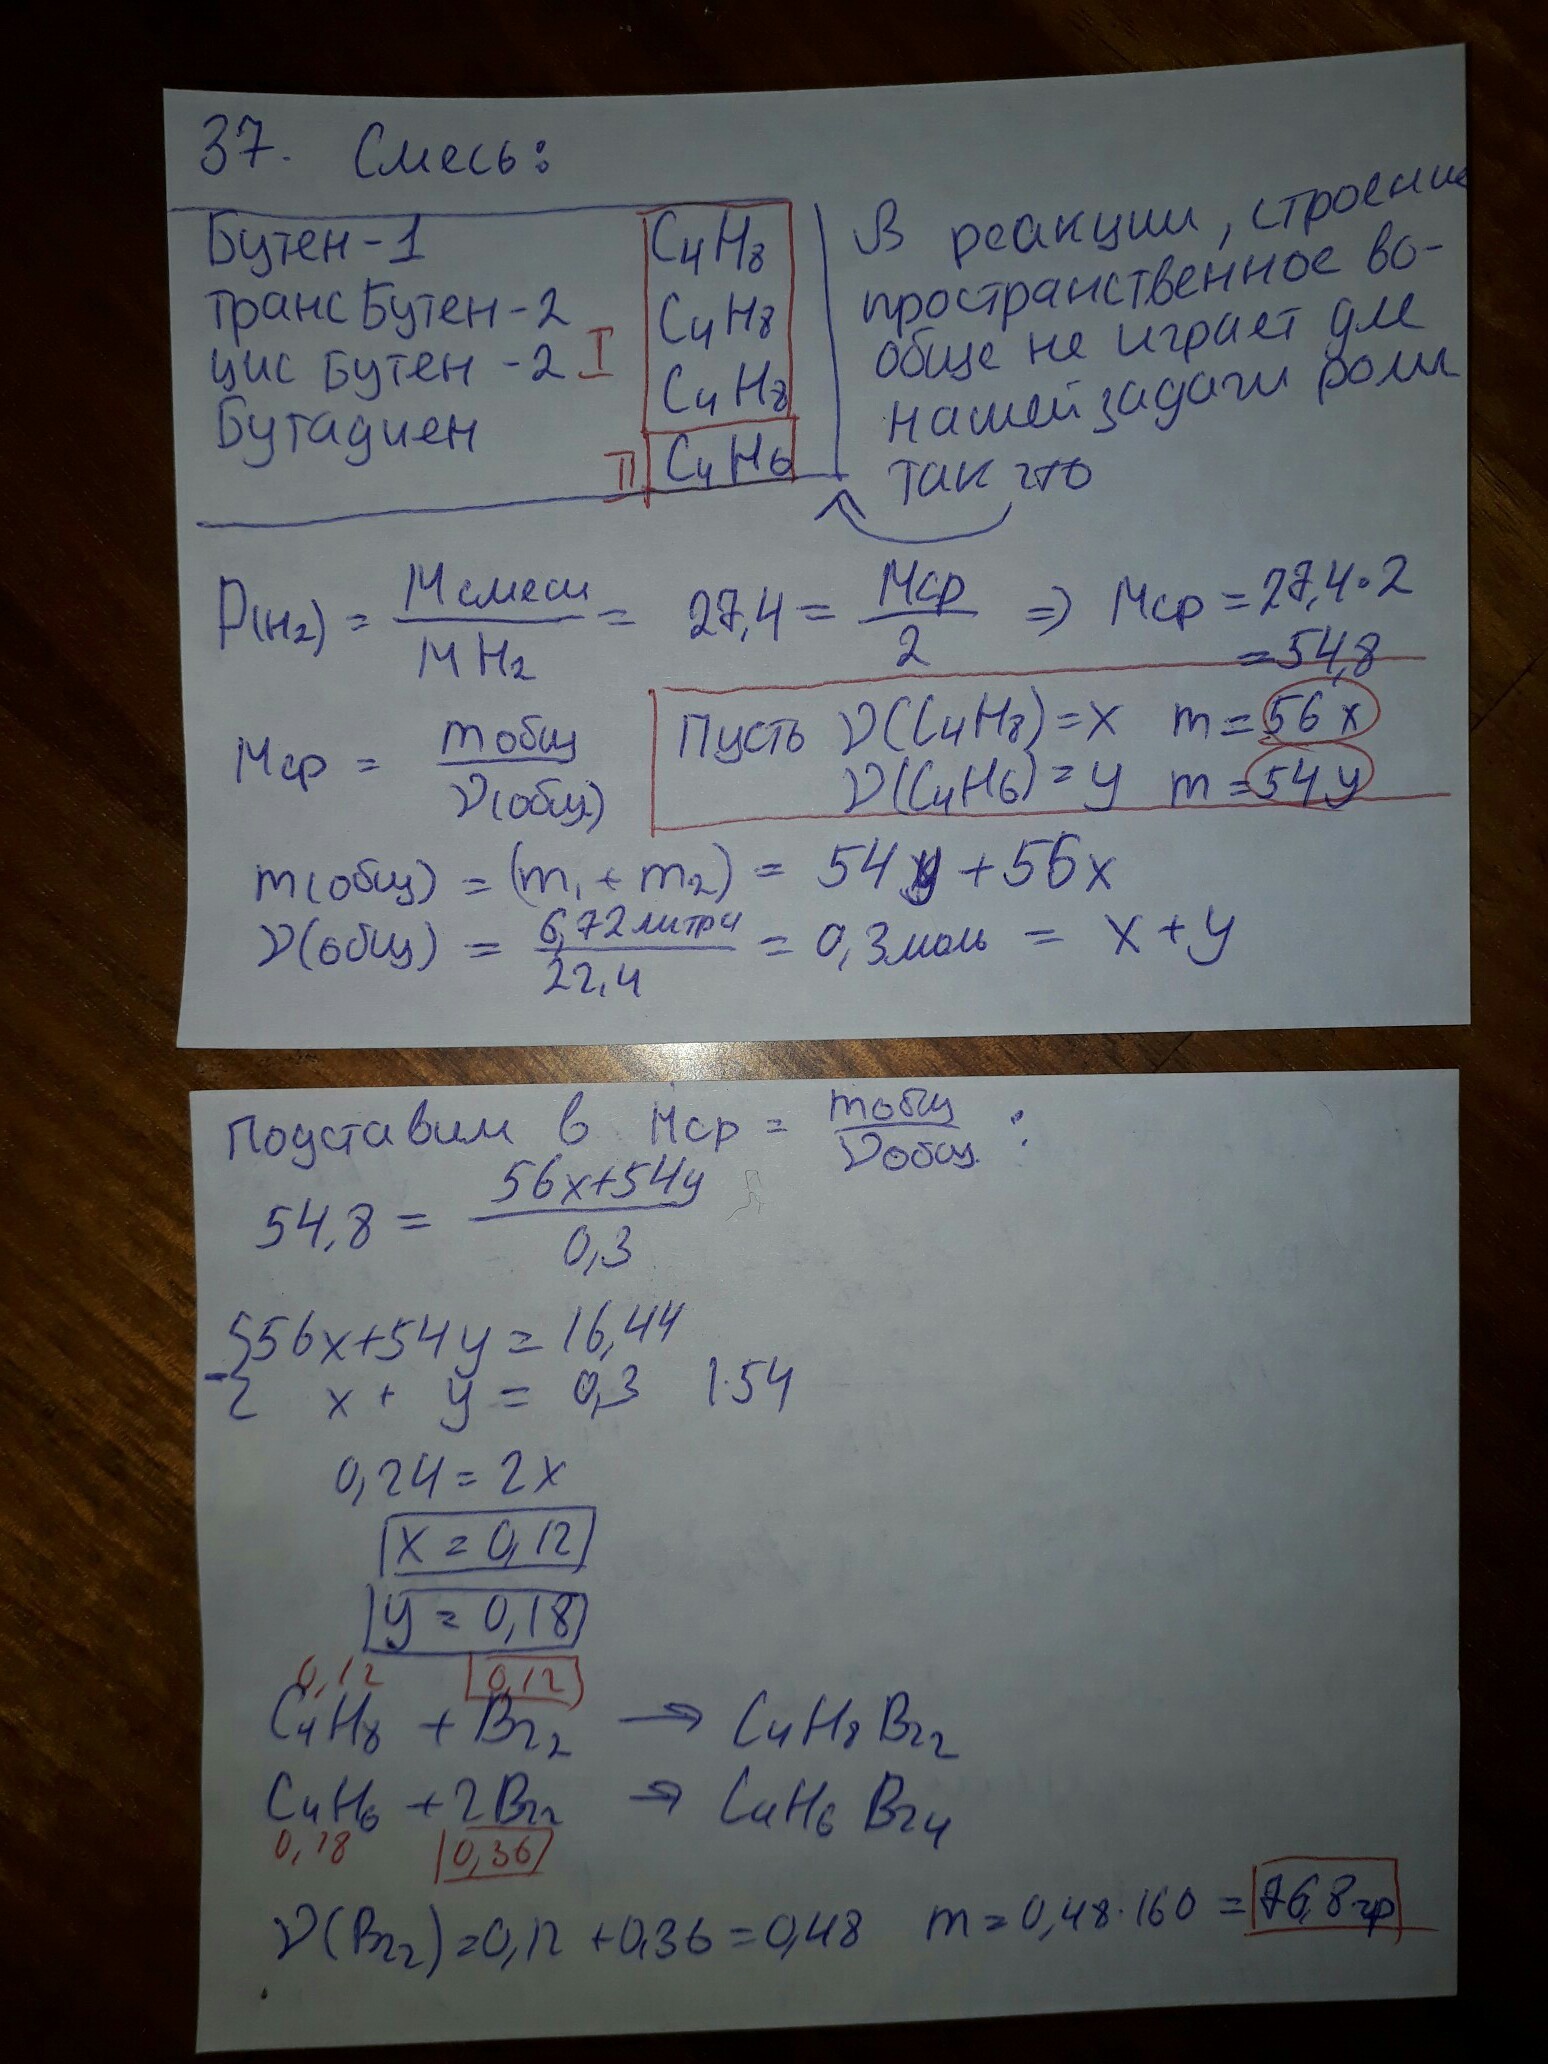 37. Смесь:
Бутен-1 C4H8
транс Бутен-2 C4H8
цис Бутен-2 I C4H8
Бутадиен II C4H6
В реакции, строение
пространственное во-
обще не играет для
нашей задачи роли
так что
D(H2) = M смеси / M H2 = 27,4 = Mср / 2 => Mср = 27,4·2
= 54,8
Mср = m общ / ν(общ)
Пусть ν(C4H8) = x m = 56x
ν(C4H6) = y m = 54y
m(общ) = (m1 + m2) = 54y + 56x
ν(общ) = 6,72 литра / 22,4 = 0,3 моль = x + y
Подставим в Mср = m общ / ν общ. :
54,8 = 56x+54y / 0,3
{56x+54y = 16,44
- { x + y = 0,3 |·54
0,24 = 2x
x = 0,12
y = 0,18
0,12 0,12
C4H8 + Br2 → C4H8Br2
C4H6 + 2Br2 → C4H6Br4
0,18 0,36
ν(Br2) = 0,12 + 0,36 = 0,48 m = 0,48·160 = 76,8 гр